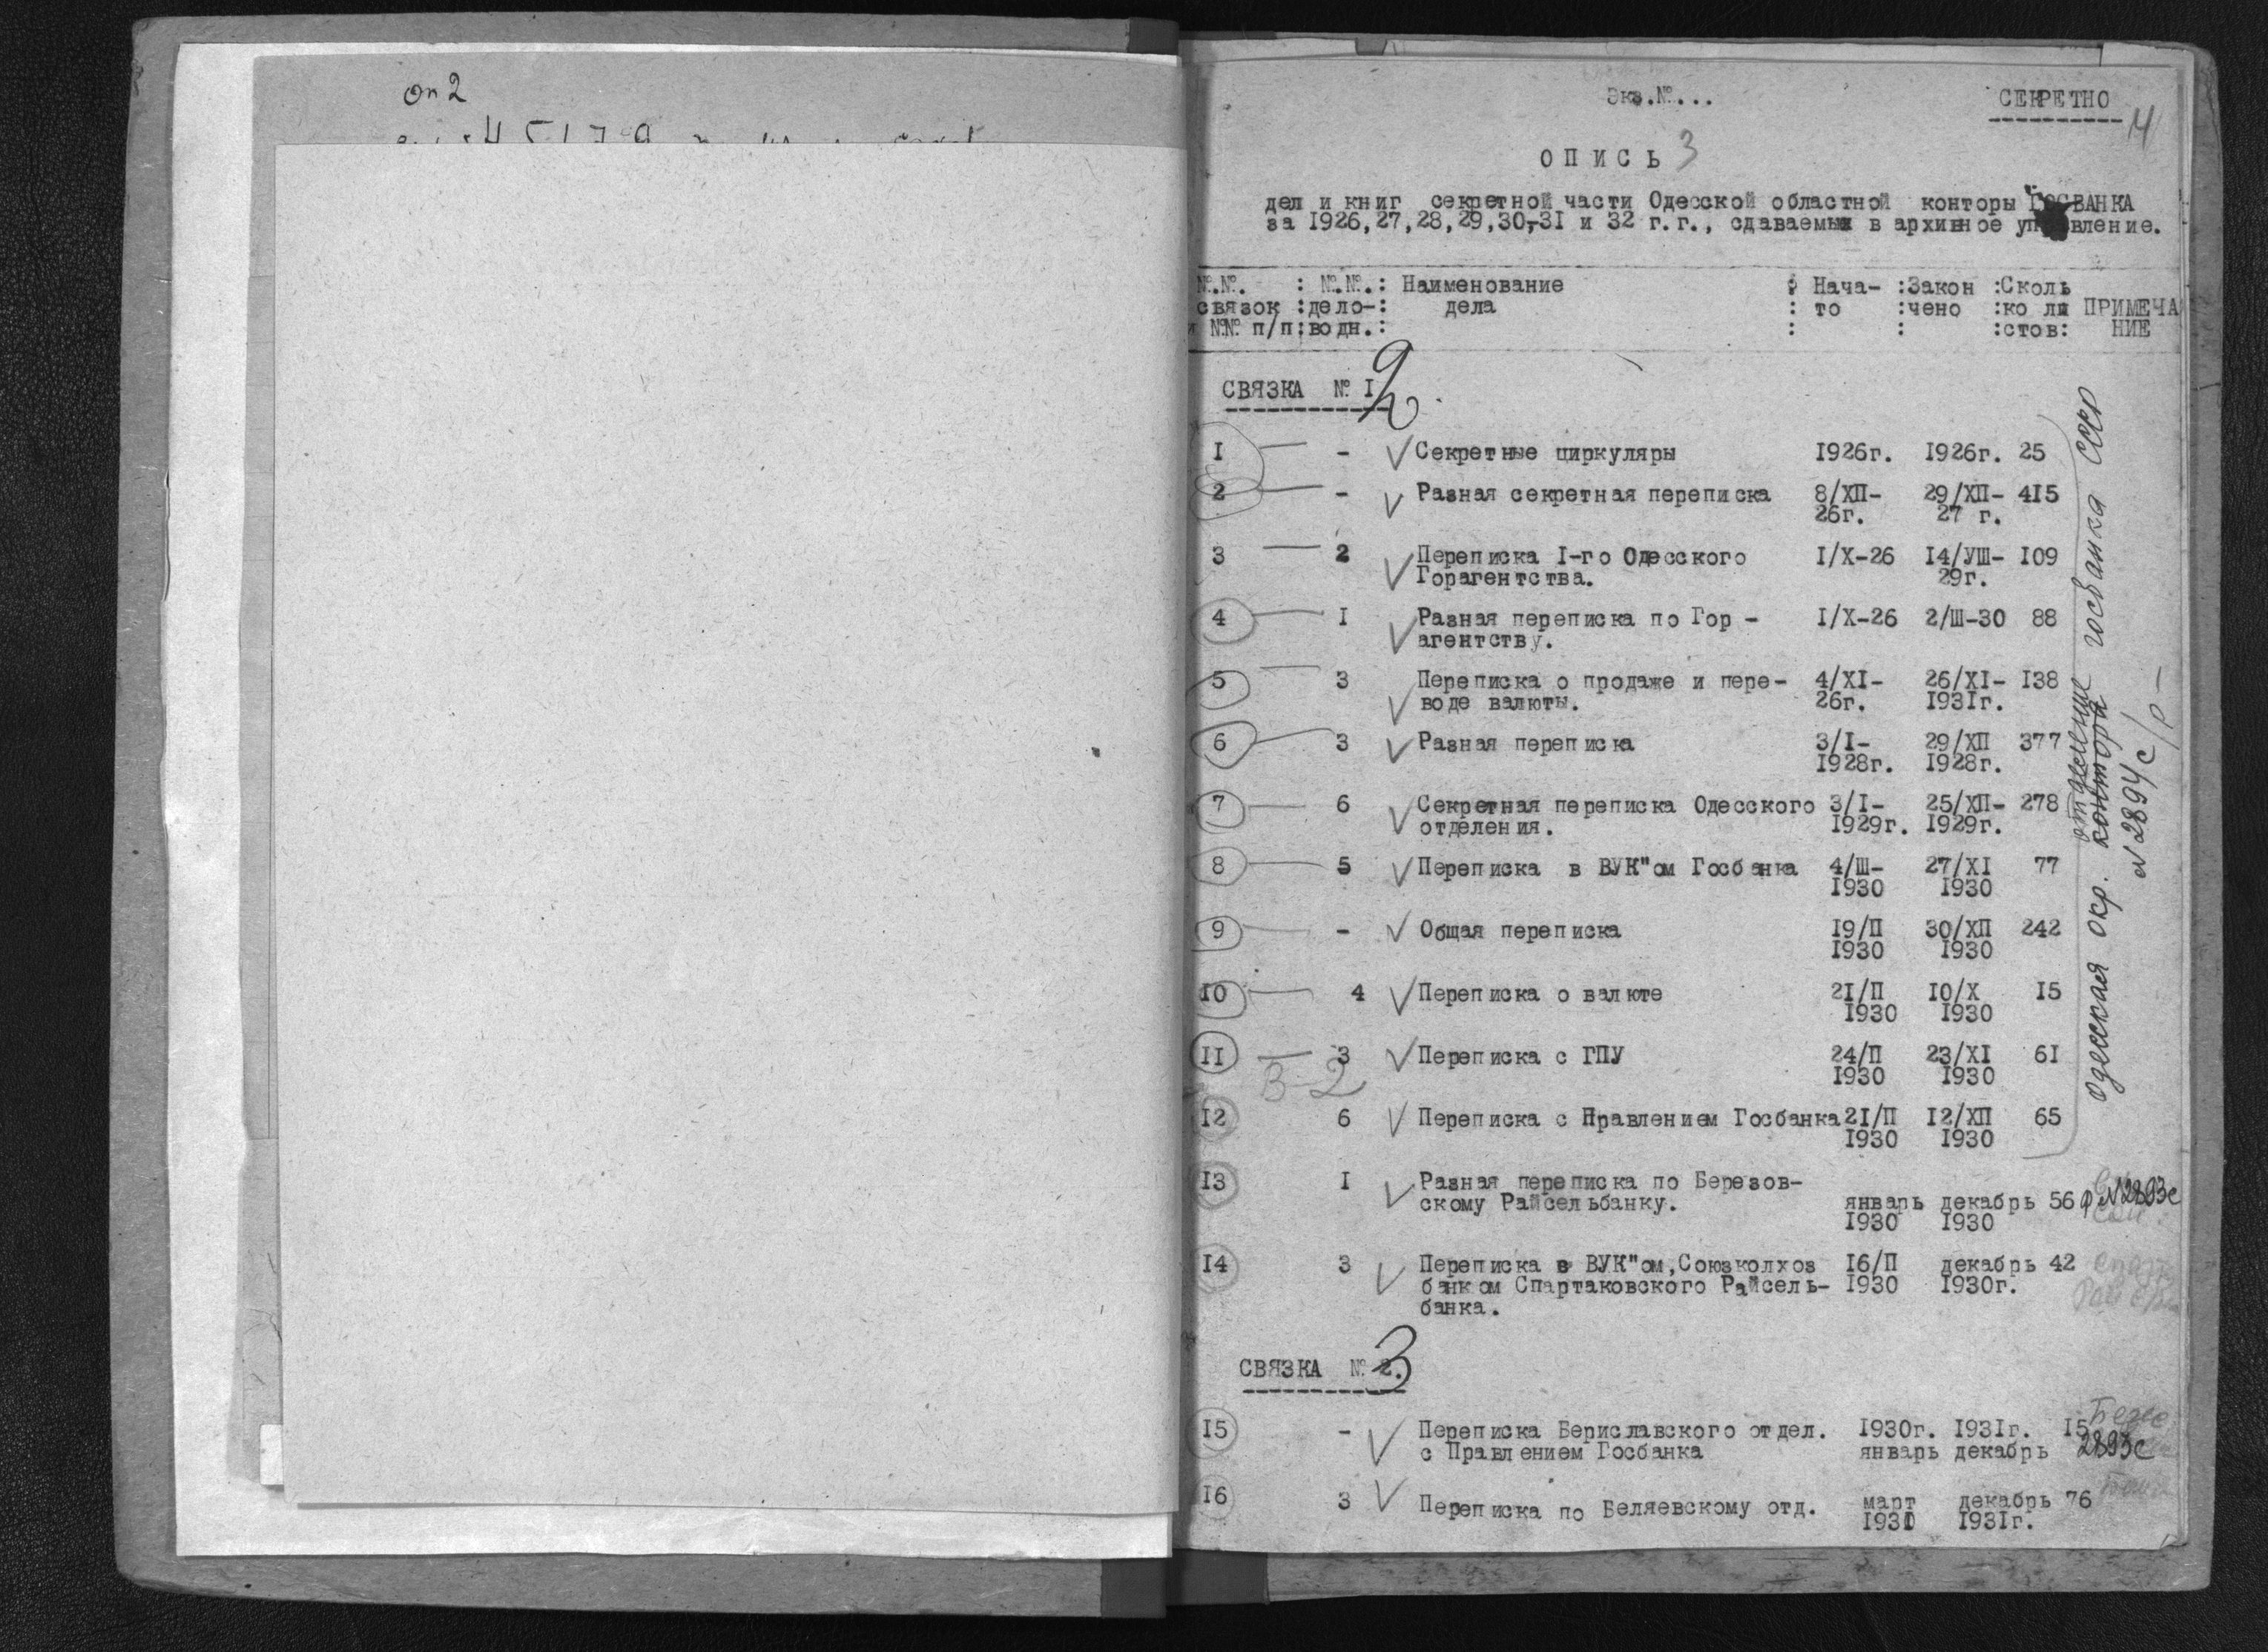 оп 2
Экз.№...
СЕКРЕТНО
4
ОПИСЬ 3
дел и книг секретной части Одесской областной конторы ГОСБАНКА
за 1926,27,28,29,30,-31 и 32 г.г., сдаваемых в архивное управление.
№.№. : №.№.: Наименование : Нача- :Закон :Сколь
связок :дело-: дела : то :чено :ко ли ПРИМЕЧА
и №№ п/п:водн.: : : :стов: НИЕ
СВЯЗКА № I 2.
I - Секретные циркуляры 1926г. 1926г. 25
2 - Разная секретная переписка 8/ХП- 29/ХП- 415
26г. 27 г.
3 2 Переписка I-го Одесского I/X-26 14/УШ- 109
Горагентства. 29г.
4 I Разная переписка по Гор - I/X-26 2/Ш-30 88
агентству.
5 3 Переписка о продаже и пере- 4/XI- 26/XI- 138
воде валюты. 26г. 1931г.
6 3 Разная переписка 3/I- 29/ХП 377
1928г. 1928г.
7 6 Секретная переписка Одесского 3/I- 25/ХП- 278
отделения. 1929г. 1929г.
8 5 Переписка в ВУК"ом Госбанка 4/Ш- 27/XI 77
1930 1930
9 - Общая переписка 19/П 30/ХП 242
1930 1930
10 4 Переписка о валюте 21/П 10/X 15
1930 1930
II 3 Переписка с ГПУ 24/П 23/XI 61
1930 1930
В-2
12 6 Переписка с Правлением Госбанка 21/П 12/ХП 65
1930 1930
13 I Разная переписка по Березов-
скому Райсельбанку. январь декабрь 56 ф №2893с
1930 1930
14 3 Переписка в ВУК"ом,Союзколхоз 16/П декабрь 42
банком Спартаковского Райсель- 1930 1930г.
банка.
одесская окр. контора отделение госбанка СССР
№ 2894с/р-
СВЯЗКА № 2. 3
15 - Переписка Бериславского отдел. 1930г. 1931г. 15
с Правлением Госбанка январь декабрь 2893с
16 3 Переписка по Беляевскому отд. март декабрь 76
1930 1931г.